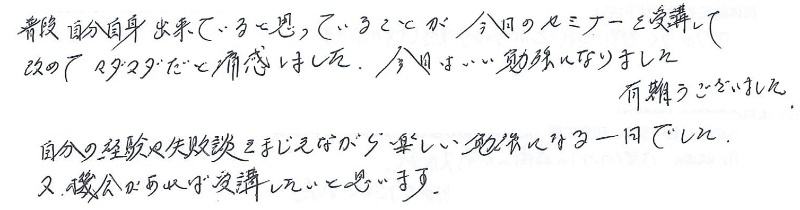 普段自分自身出来ていると思っていることが今日のセミナーを受講して
改めてマダマダだと痛感しました。今日はいい勉強になりました
有難うございました。
自分の経験や失敗談をまじえながら楽しい勉強になる一日でした。
又、機会があれば受講したいと思います。